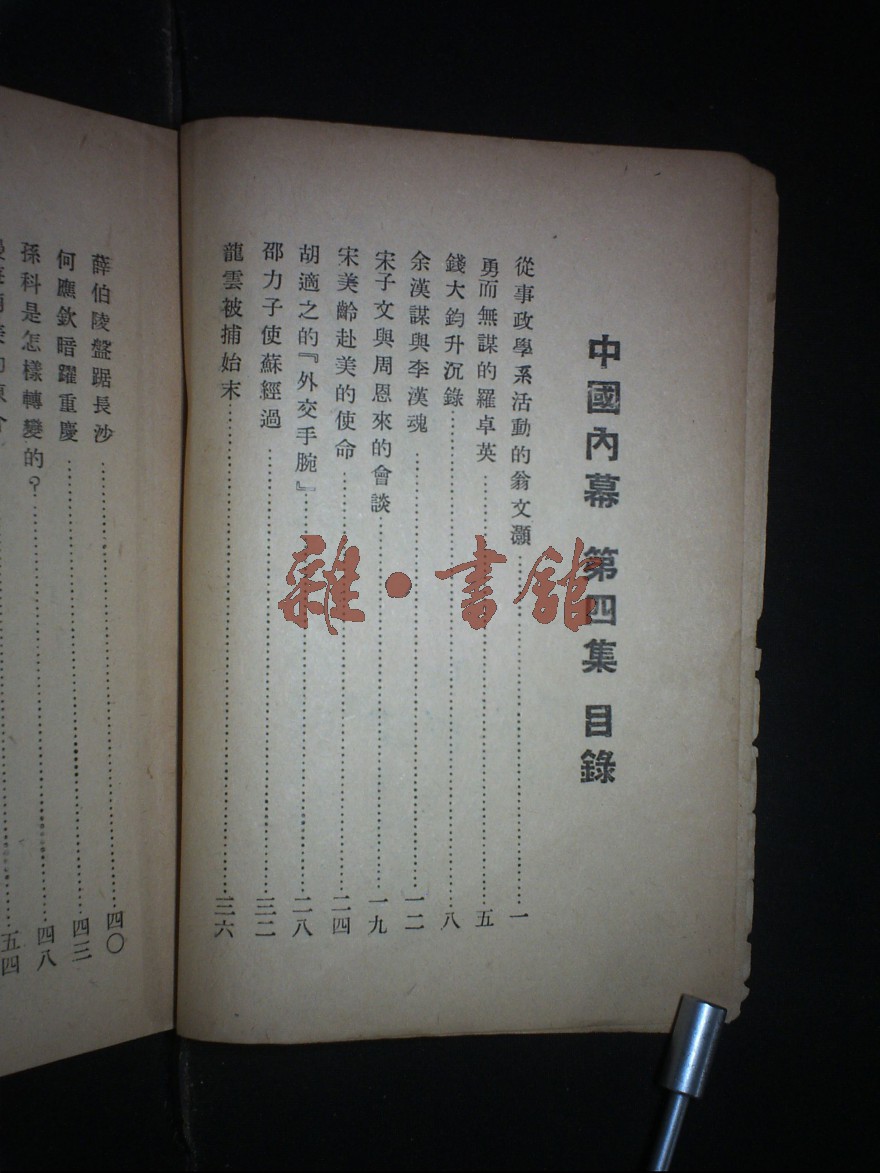 中國內幕 第四集 目錄
從事政學系活動的翁文灝……一
勇而無謀的羅卓英……五
錢大鈞升沉錄……八
余漢謀與李漢魂……一二
宋子文與周恩來的會談……一九
宋美齡赴美的使命……二四
胡適之的『外交手腕』……二八
邵力子使蘇經過……三二
龍雲被捕始末……三六
薛伯陵盤踞長沙……四〇
何應欽暗躍重慶……四三
孫科是怎樣轉變的？……四八
……五四
雜·書館